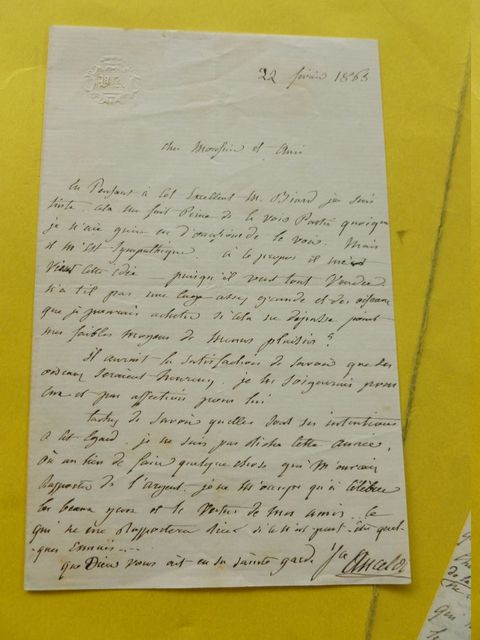 22 février 1863
cher Monsieur et Ami
En Pensant à cet Excellent M. Biard je suis
triste. cela me fait Peine de le voir Partir quoique
je n'aie guère eu d'occasions de le voir. Mais
il m'est Sympathique. à ce propos il me
vient cette idée puisqu'il veut tout Vendre
n'a t'il pas une cage assez grande et des oiseaux
que je pourrais acheter si cela ne dépasse point
mes faibles moyens de menus plaisirs ?
Il aurait la satisfaction de savoir que ses
oiseaux seraient heureux. je les soignerais pour
eux et par affection pour lui
tachez de savoir quelles sont ses intentions
à cet Egard. je ne suis pas riche cette année,
Où au lieu de faire quelque chose qui m'aurait
Rapporté de l'argent, je ne m'occupe qu'à célébrer
les beaux yeux et la Vertu de mes amis. ce
qui ne me Rapportera rien si ce n'est peut-être quel-
ques Ennuis
que Dieu vous ait en sa sainte garde Vie Ancelot